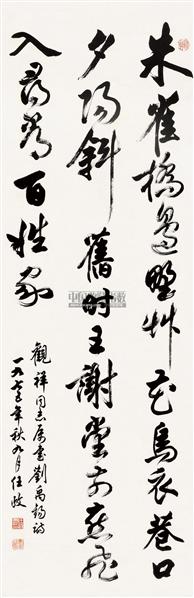 朱雀橋邊野艸花烏衣巷口
夕陽斜舊时王謝堂前燕飛
入尋常百姓家
觀祥同志屬書劉禹錫詩
一九七五年秋九月任政